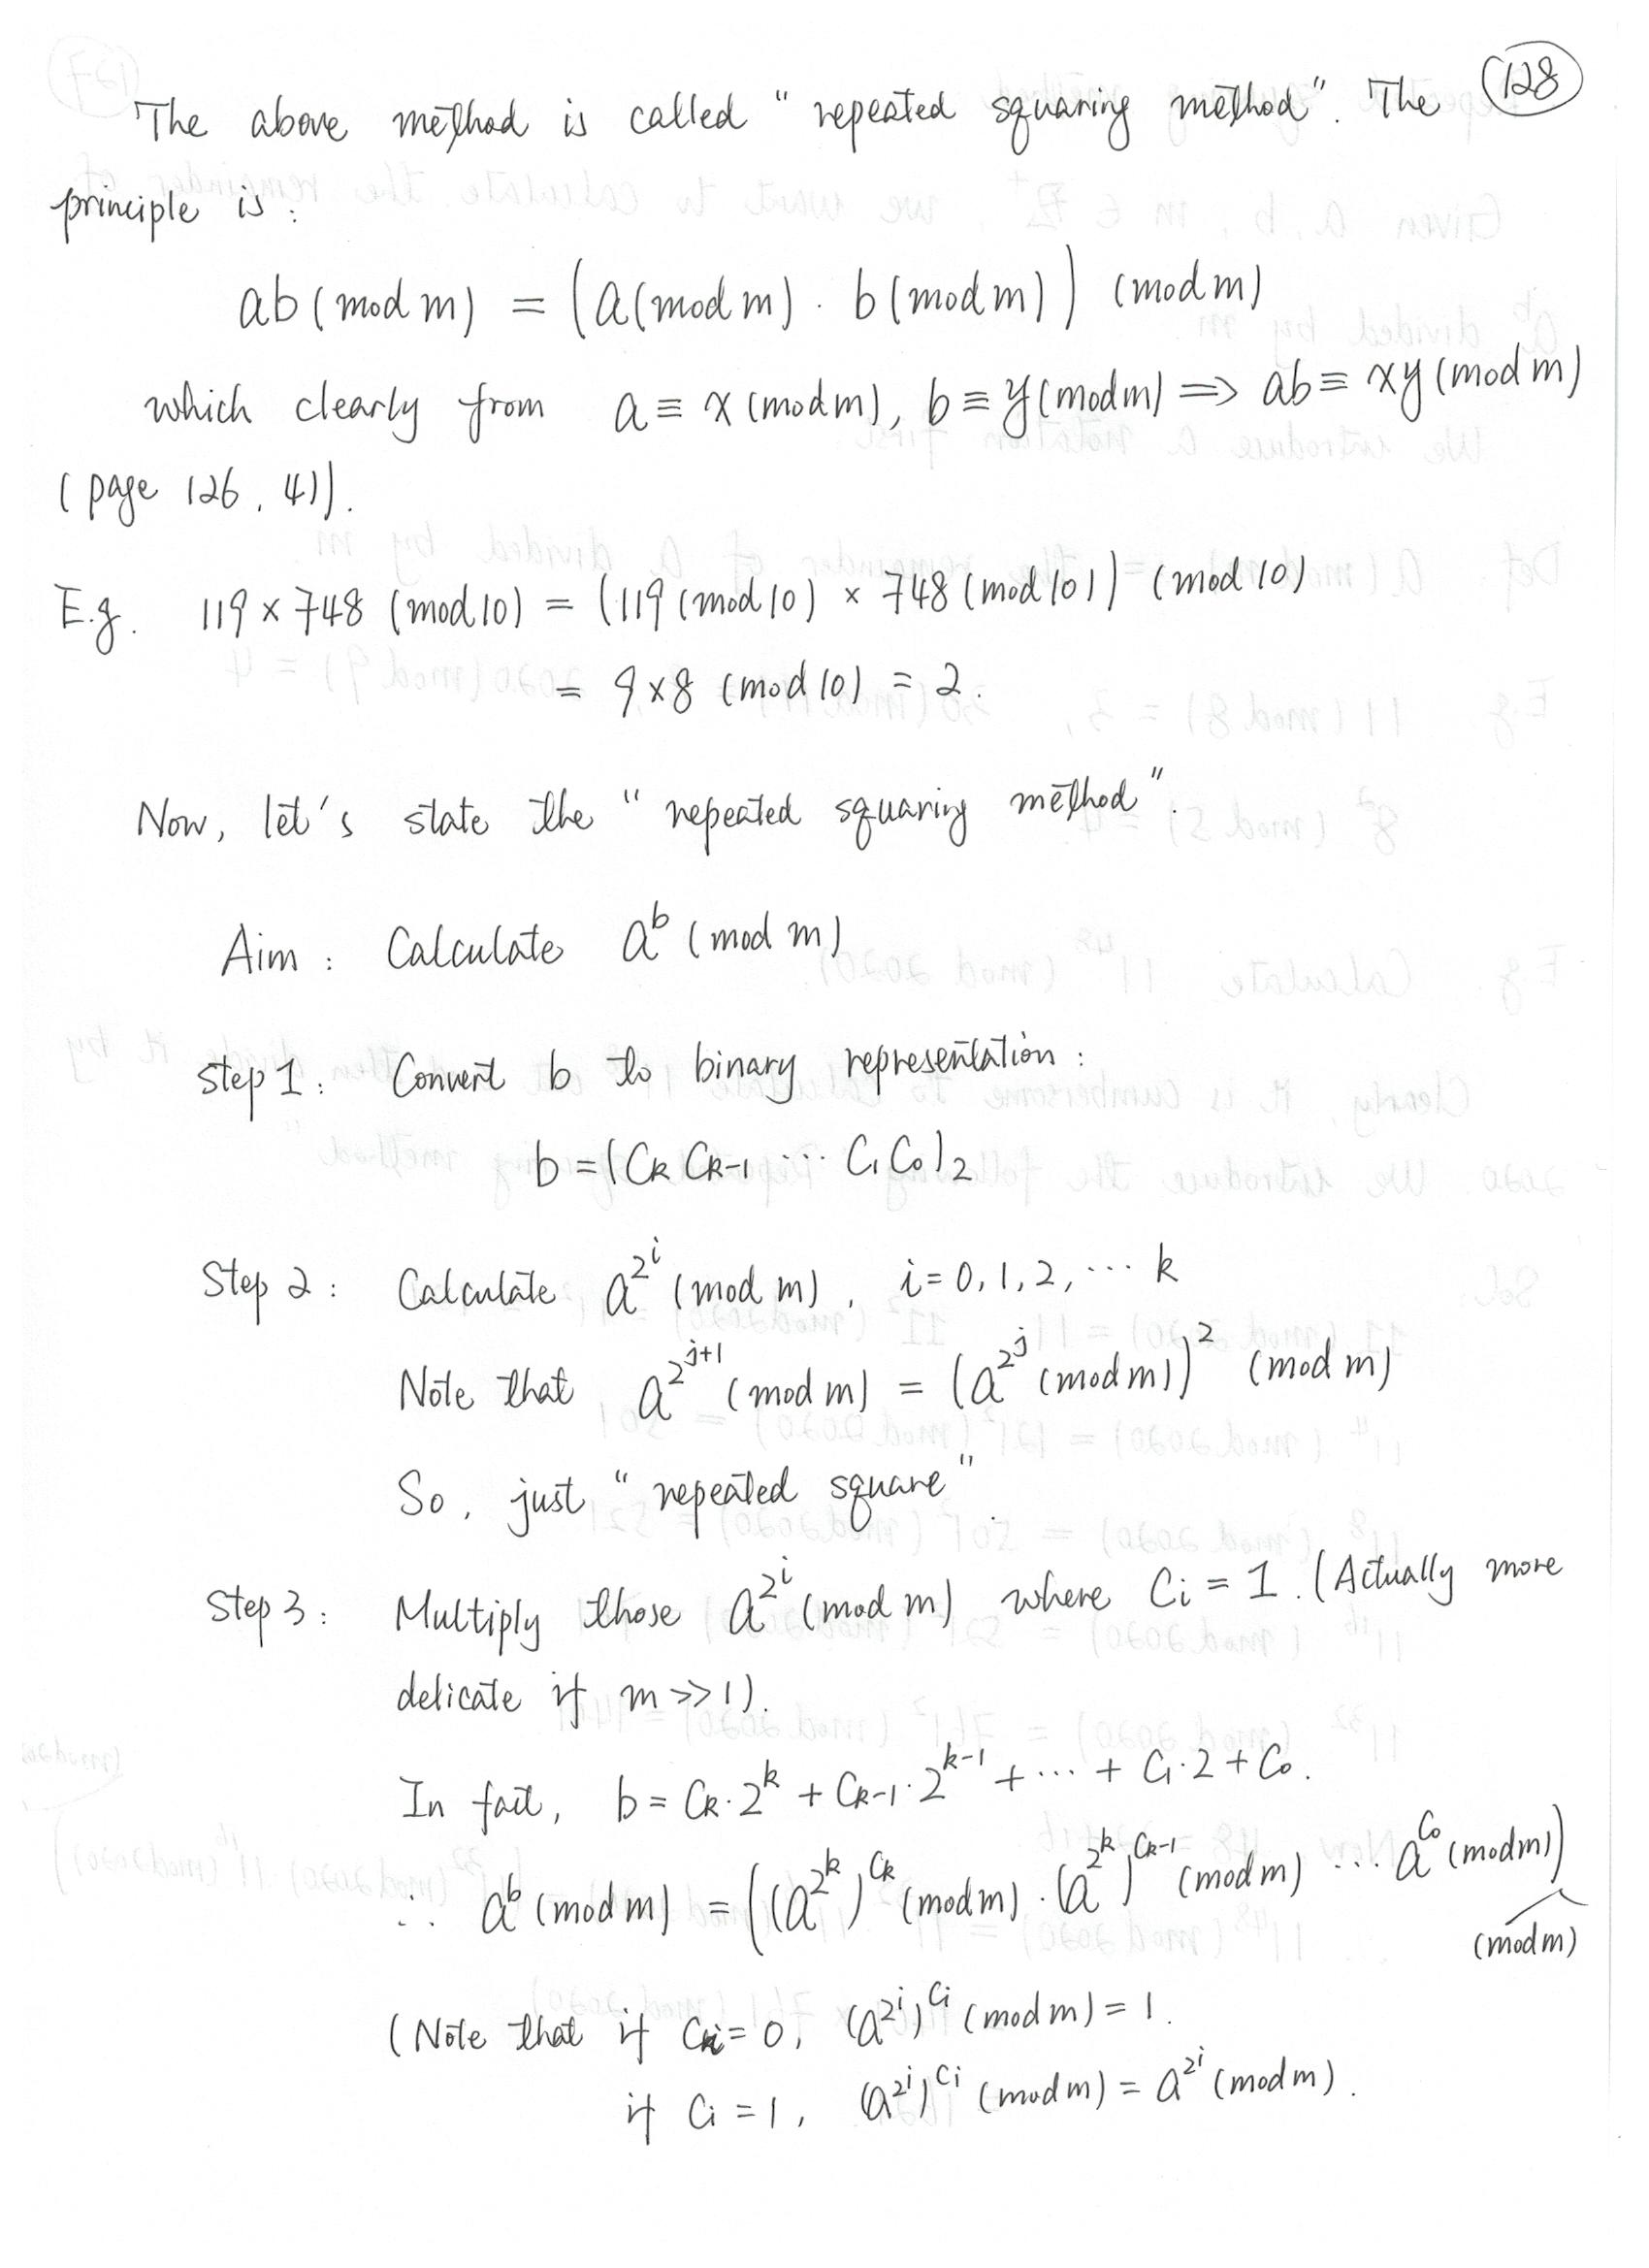 128
The above method is called "repeated squaring method". The
principle is:
ab (mod m) = (a (mod m) · b (mod m)) (mod m)
which clearly from a ≡ x (mod m), b ≡ y (mod m) ⟹ ab ≡ xy (mod m)
(page 126, 4)).
E.g. 119 × 748 (mod 10) = (119 (mod 10) × 748 (mod 10)) (mod 10)
= 9×8 (mod 10) = 2.
Now, let's state the "repeated squaring method".
Aim: Calculate a^b (mod m)
Step 1: Convert b to binary representation:
b = (C_k C_{k-1} ... C_1 C_0)_2
Step 2: Calculate a^{2^i} (mod m), i = 0, 1, 2, ... k
Note that a^{2^{j+1}} (mod m) = (a^{2^j} (mod m))^2 (mod m)
So, just "repeated square".
Step 3: Multiply those a^{2^i} (mod m) where C_i = 1. (Actually more
delicate if m ≫ 1).
In fact, b = C_k·2^k + C_{k-1}·2^{k-1} + ... + C_1·2 + C_0.
∴ a^b (mod m) = ((a^{2^k})^{C_k} (mod m) · (a^{2^k})^{C_{k-1}} (mod m) ... a^{C_0} (mod m))
(mod m)
(Note that if C_i = 0, (a^{2^i})^{C_i} (mod m) = 1.
if C_i = 1, (a^{2^i})^{C_i} (mod m) = a^{2^i} (mod m).